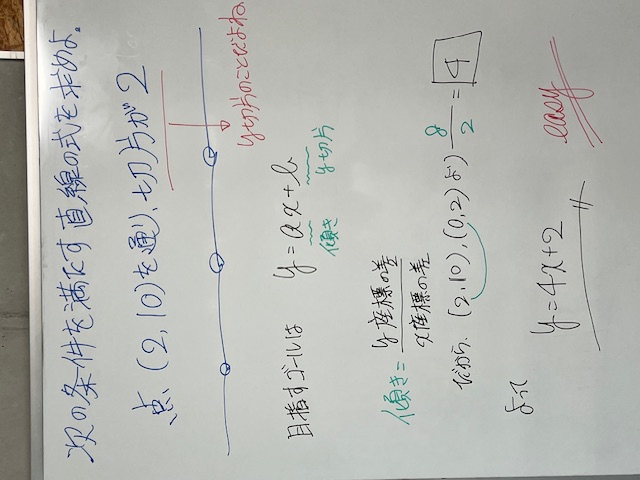 次の条件を満たす直線の式を求めよ。
点(2,10)を通り、切片が2
y切片のことだよね
目指すゴールは y=ax+b
傾き y切片
傾き= y座標の差/x座標の差
だから、(2,10),(0,2)より 8/2=4
よって y=4x+2
easy